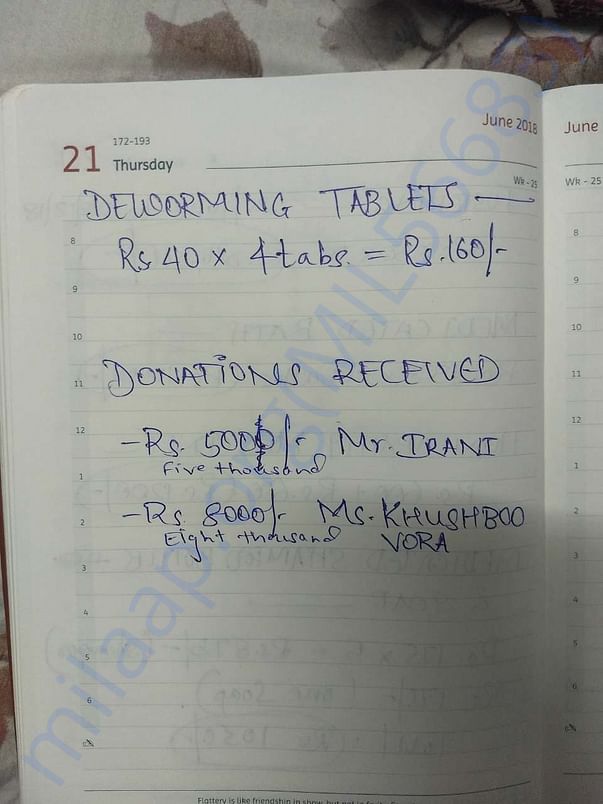 June 2018
June
172-193
21 Thursday
Wk - 25
Wk - 25
DEWORMING TABLETS
8
Rs 40 x 4 tabs. = Rs. 160/-
9
10
DONATIONS RECEIVED
11
12
- Rs. 5000/- Mr. IRANI
Five thousand
1
- Rs. 8000/- Ms. KHUSHBOO
2
Eight thousand VORA
3
4
5
6
8
9
10
11
12
1
2
3
4
5
6